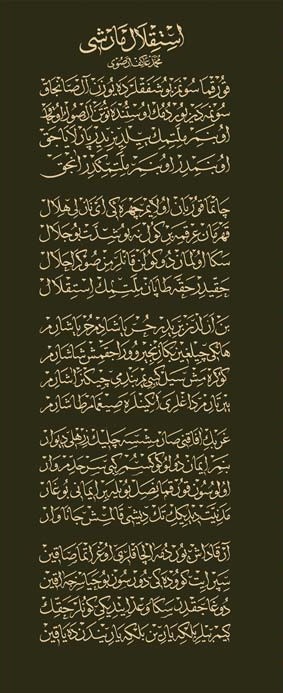 استقلال مارشی
محمد عاکف ارصوی
قورقما سونمز بو شفقلرده یوزن آل صانجاق
سونمەدن یوردمك اوستنده توتن اك صوك اوجاق
او بنم ملتمك ییلدیزیدر پارلایاجق
او بنمدر او بنم ملتمكدر آنجق
چاتما قوربان اولایم چهره‌كی ای نازلی هلال
قهرمان عرقمه بر كول نه بو شدت بو جلال
سكا اولماز دوكولن قانلرمز صوكرا حلال
حقیدر حقه طاپان ملتمك استقلال
بن ازلدن بریدر حر یاشادم حر یاشارم
هانكی چیلغین بكا زنجیر ووراجقمش شاشارم
كوكره‌مش سیل كبی‌یم بندمی چیكنر آشارم
ییرتارم داغلری انكینلره صیغمام طاشارم
غربك آفاقنی صارمشسه چلیك زرهلی دیوار
بنم ایمان دولو كوكسم كبی سرحدم وار
اولوسون قورقما ناصل بویله بر ایمانی بوغار
مدنیت دیدیكك تك دیشی قالمش جاناوار
آرقاداش یوردمه آلچاقلری اوغراتما صاقین
سپر ایت كووده‌كی دورسون بو حیاسزجه آقین
دوغاجقدر سكا وعد ایتدیكی كونلر حقك
كیم بیلیر بلكه یارین بلكه یاریندن ده یاقین